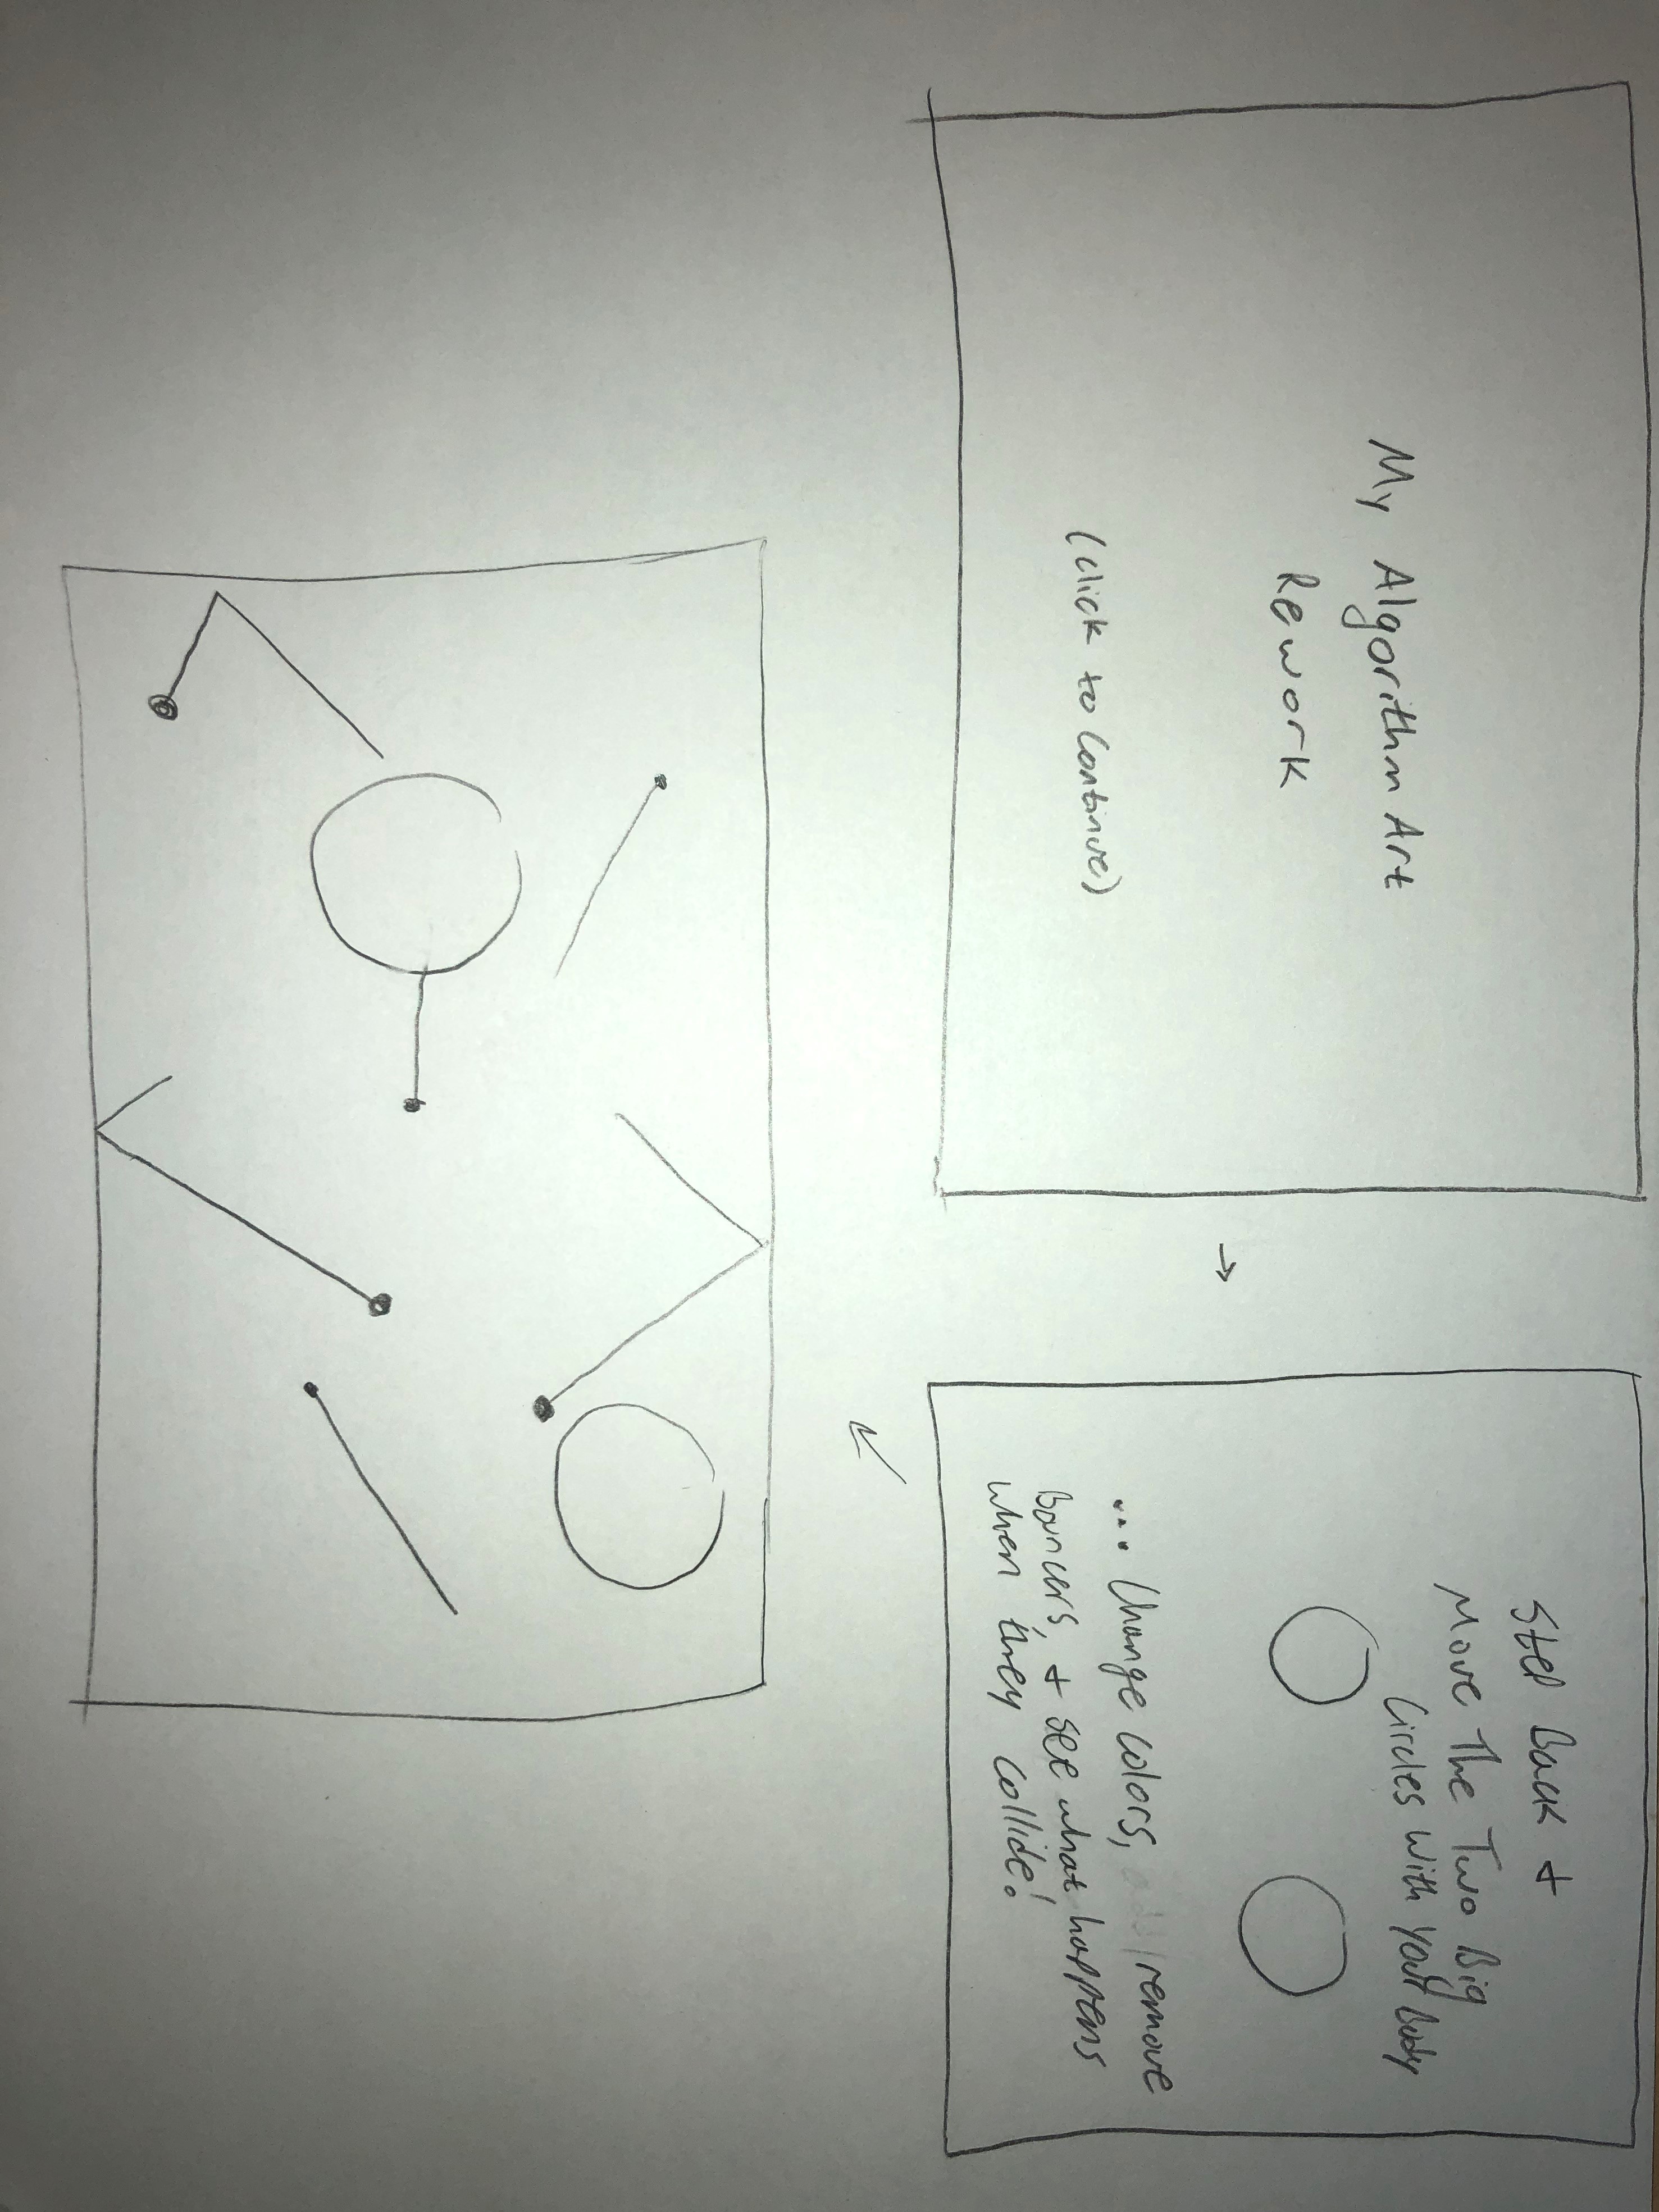 My Algorithm Art
Rework
(click to continue)
Step Back +
Move The Two Big
Circles With Your Body
... Change colors, /remove
Bouncers, + see what happens
when they collide!